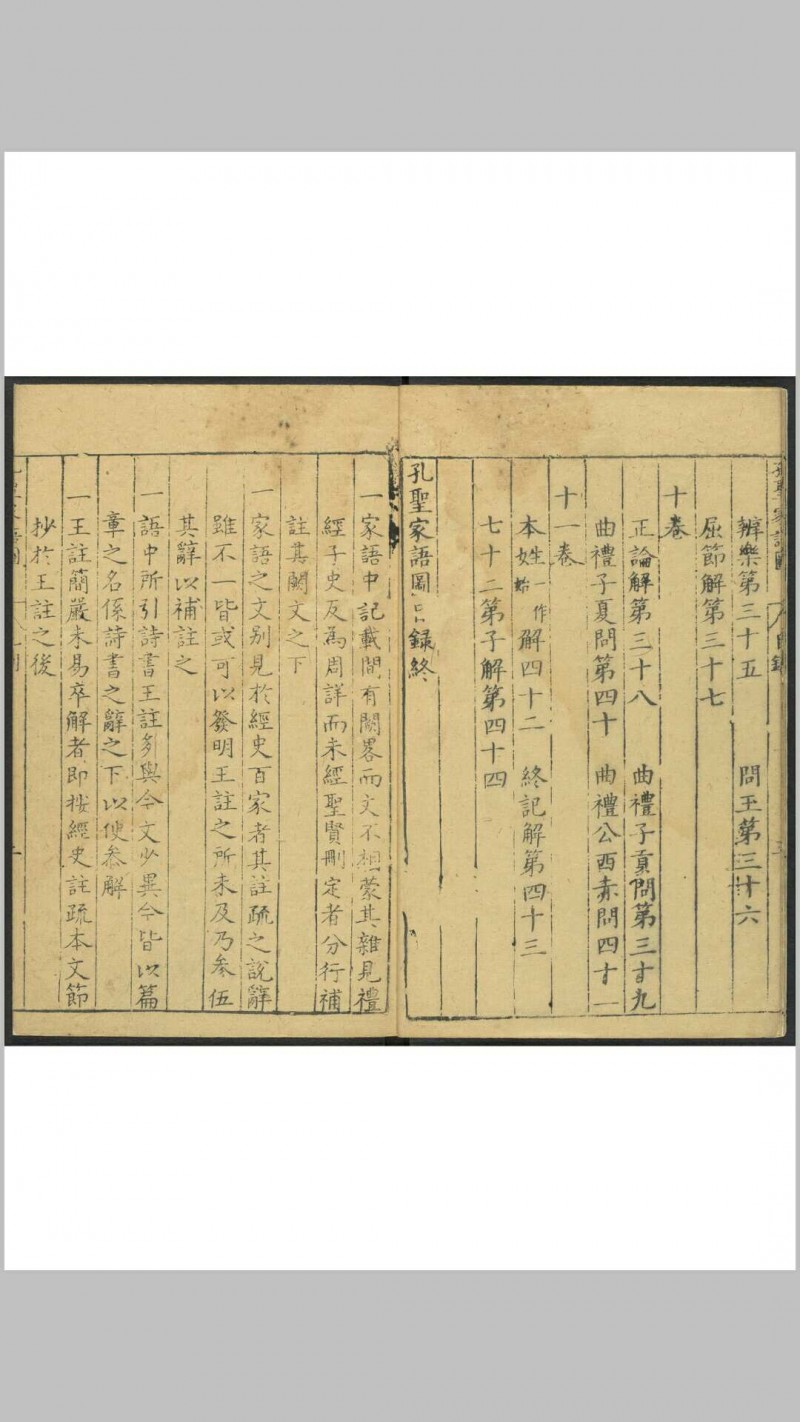 辨樂第三十五　問玉第三十六
屈節解第三十七
十卷
正論解第三十八　曲禮子貢問第三十九
曲禮子夏問第四十　曲禮公西赤問四十一
十一卷
本姓一作始解四十二　終記解第四十三
七十二第子解第四十四
孔聖家語圖目錄終
一家語中記載間有闕畧而文不相蒙其雜見禮
經子史反為周詳而未經聖賢刪定者分行補
註其闕文之下
一家語之文別見於經史百家者其註疏之說辭
雖不一皆或可以發明王註之所未及乃參伍
其辭以補註之
一語中所引詩書王註多與今文少異今皆以篇
章之名係詩書之辭之下以便參解
一王註簡嚴未易卒解者即按經史註疏本文節
抄於王註之後